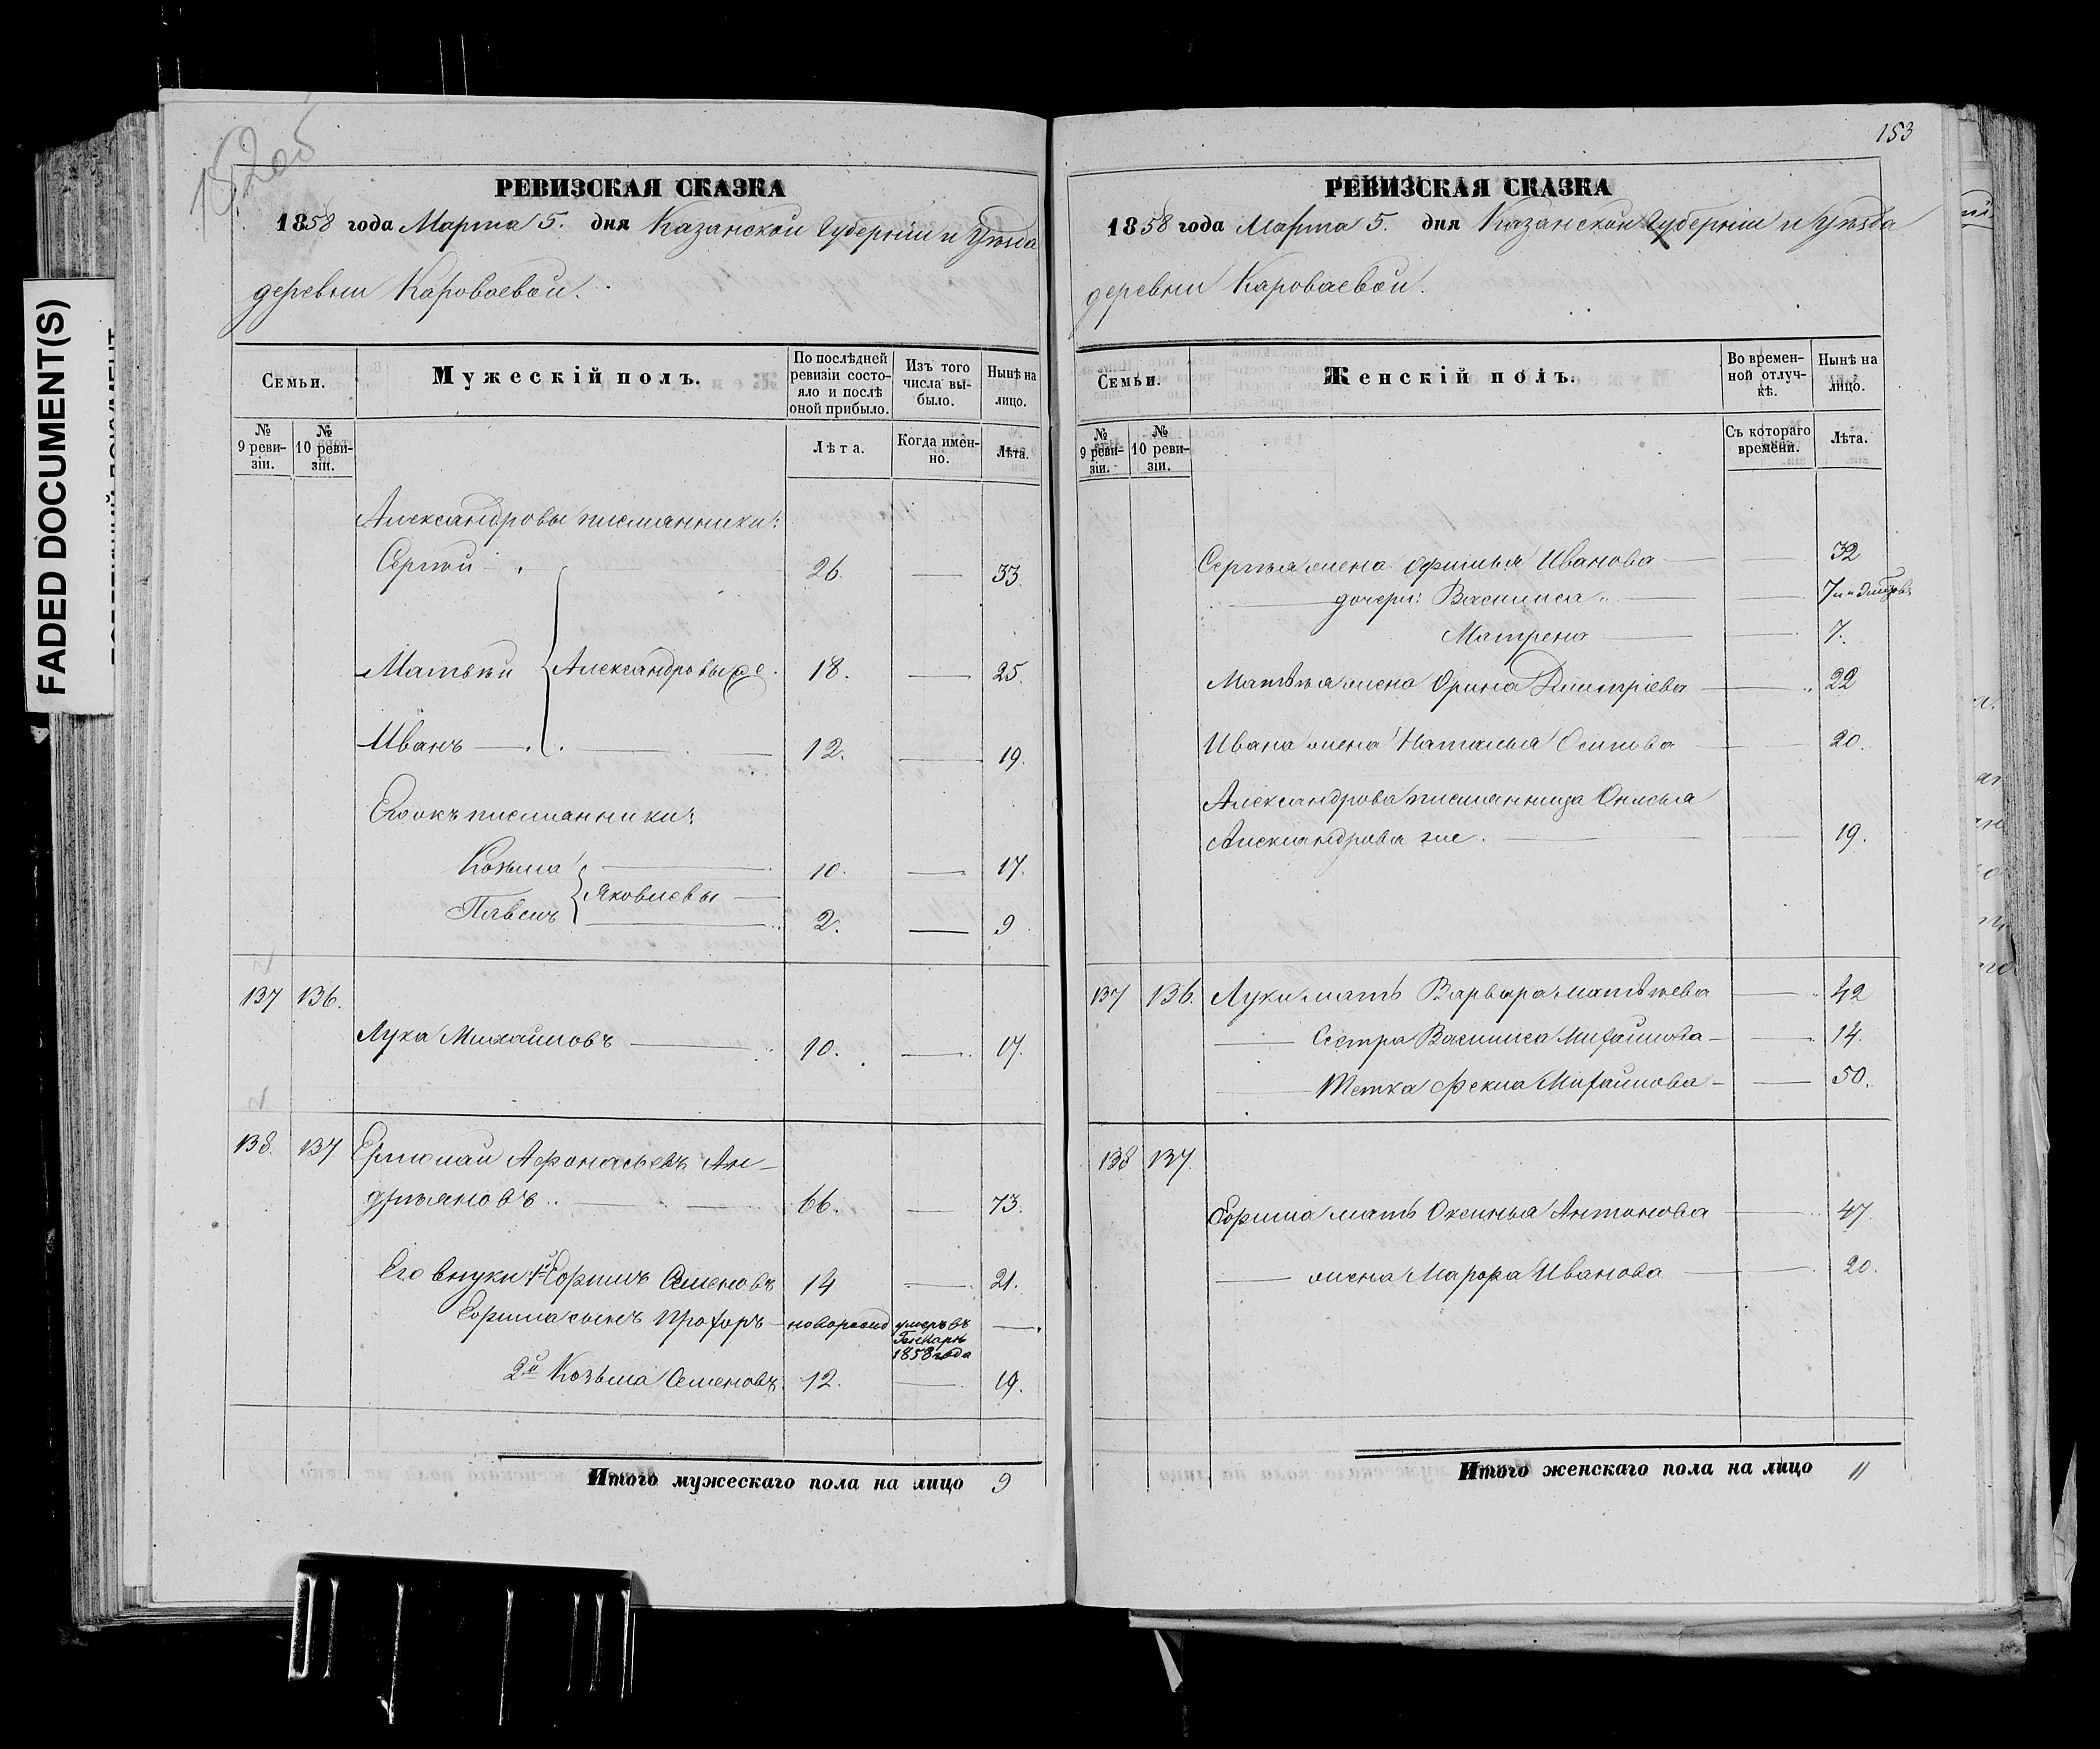 FADED DOCUMENT(S)
152 об
РЕВИЗСКАЯ СКАЗКА
1858 года Марта 5. дня Казанской Губерніи и Уѣзда
деревни Короваевой.
Семьи.
Мужескій полъ.
По послѣдней ревизіи состояло и послѣ оной прибыло.
Изъ того числа выбыло.
Нынѣ на лицо.
№ 9 ревизіи.
№ 10 ревизіи.
Лѣта.
Когда именно.
Лѣта.
Александровы племянники:
Сергѣй 26. — 33.
Матвѣй Александровы же. 18. — 25.
Иванъ 12. — 19.
племянники:
Козьма 10. — 17.
Яковлевы
Павелъ 2. — 9
137 136.
Лука Михайловъ 10. — 17.
138. 137 Ермолай Афонасьевъ Ан-
дрьяновъ 66. — 73.
Его внуки 1й Ефримъ Семеновъ 14 — 21.
Ефрима сынъ Прохоръ новорожд умеръ въ Генварѣ 1858 года —
2й Козьма Семеновъ 12. — 19.
Итого мужескаго пола на лицо 9
153
РЕВИЗСКАЯ СКАЗКА
1858 года Марта 5. дня Казанской Губерніи и Уѣзда
деревни Короваевой.
Семьи.
Женскій полъ.
Во временной отлучкѣ.
Нынѣ на лицо.
№ 9 ревизіи.
№ 10 ревизіи.
Съ котораго времени.
Лѣта.
Сергѣя жена Офимья Иванова — 32
дочери: Василиса — 7
Матрена — 7.
Матвѣя жена Орина Дмитріева — 22
Ивана жена Наталья Осипова — 20.
Александрова племянница
Александрова же. — 19.
137 136. Луки мать Варвара Матвѣева — 42
Сестра Василиса Михайлова — 14.
Тетка Фекла Михайлова — 50.
138 137.
Ефрима мать Оксинья Антонова — 47.
жена Марфа Иванова — 20.
Итого женскаго пола на лицо 11